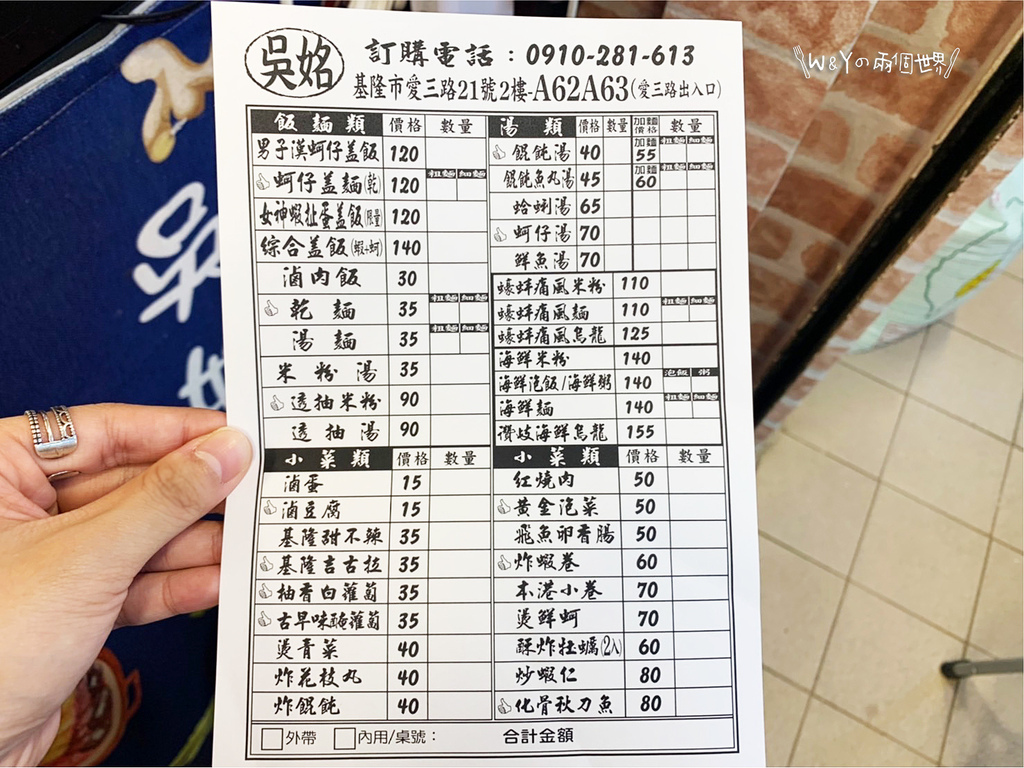 吳姳
訂購電話：0910-281-613
基隆市愛三路21號2樓-A62A63(愛三路出入口)
W&Yの兩個世界
飯麵類 價格 數量
男子漢蚵仔盖飯 120
蚵仔盖麵(乾) 120 粗麵 細麵
女神蝦扯蛋盖飯(限量) 120
綜合盖飯(蝦+蚵) 140
滷肉飯 30
乾麵 35 粗麵 細麵
湯麵 35 粗麵 細麵
米粉湯 35
透抽米粉 90
透抽湯 90
湯類 價格 數量 加麵價格 數量
餛飩湯 40 加麵55 粗麵 細麵
餛飩魚丸湯 45 加麵60 粗麵 細麵
蛤蜊湯 65
蚵仔湯 70
鮮魚湯 70
蠔蚌痛風米粉 110
蠔蚌痛風麵 110 粗麵 細麵
蠔蚌痛風烏龍 125
海鮮米粉 140
海鮮泡飯/海鮮粥 140 泡飯 粥
海鮮麵 140 粗麵 細麵
讚岐海鮮烏龍 155
小菜類 價格 數量
滷蛋 15
滷豆腐 15
基隆甜不辣 35
基隆吉古拉 35
柚香白蘿蔔 35
古早味醃蘿蔔 35
燙青菜 40
炸花枝丸 40
炸餛飩 40
小菜類 價格 數量
紅燒肉 50
黃金泡菜 50
飛魚卵香腸 50
炸蝦卷 60
本港小卷 70
燙鮮蚵 70
酥炸牡蠣(2入) 60
炒蝦仁 80
化骨秋刀魚 80
外帶 內用/桌號： 合計金額
吳